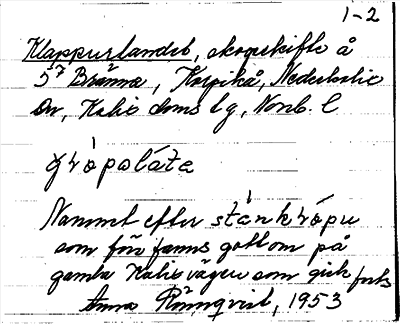 1-2
Klappurlandet, skogskifte å
5⁷ Brännä, Korpikå, Nederkalix
sn, Kalix doms lg, Norrb. l

Namnet efter stánkrópu
som för fanns gott om på
gamla Kalixvägen som gick förbi
Anna Rönnqvist, 1953